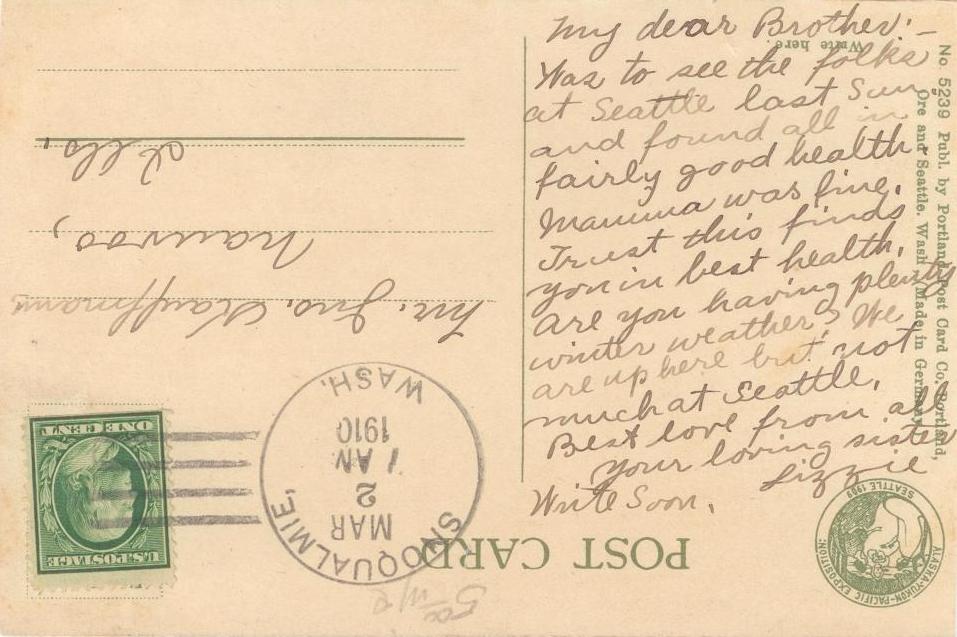 My dear Brother:-
Was to see the folks
at Seattle last Sun
and found all in
fairly good health
Mamma was fine.
Trust this finds
you in best health.
Are you having plenty
winter weather? We
are up here but not
much at Seattle.
Best love from all
Your loving sister
Lizzie
Write Soon.
Write here
No 5239 Publ. by Portland Post Card Co. Portland,
Ore and Seattle, Wash. Made in Germany
POST CARD
ALASKA-YUKON-PACIFIC EXPOSITION
SEATTLE 1909
SNOQUALMIE,
MAR
2
7 AM
1910
WASH.
U.S. POSTAGE
ONE CENT
Mr. Jno. Kauffmann
Nauvoo,
Ills,